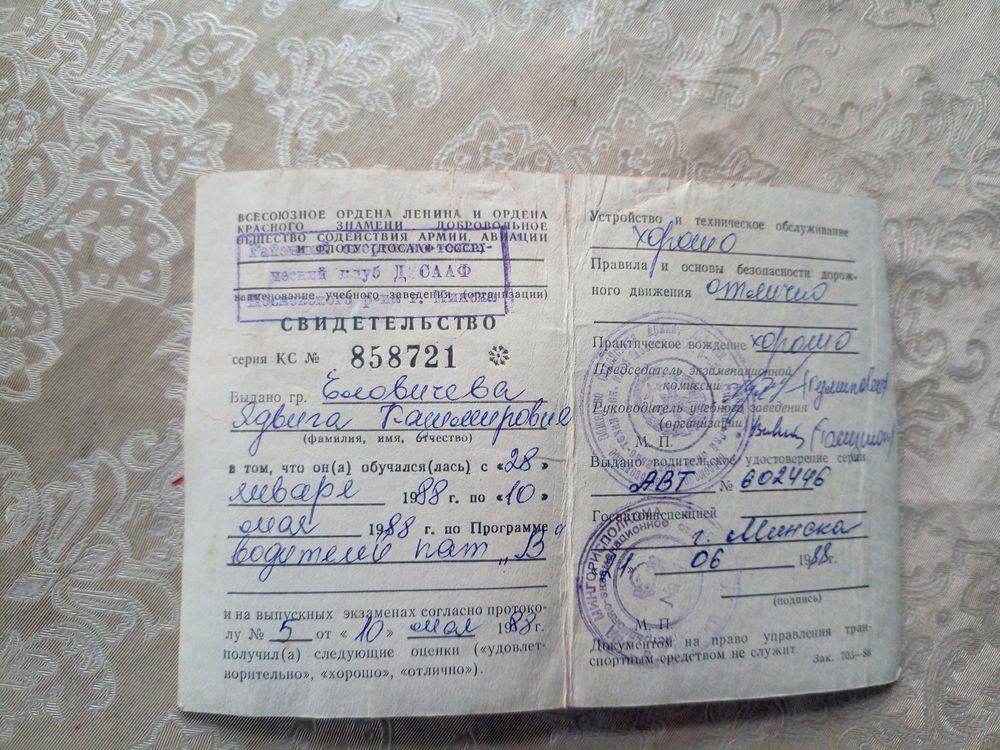 ВСЕСОЮЗНОЕ ОРДЕНА ЛЕНИНА И ОРДЕНА
КРАСНОГО ЗНАМЕНИ ДОБРОВОЛЬНОЕ
ОБЩЕСТВО СОДЕЙСТВИЯ АРМИИ, АВИАЦИИ
И ФЛОТУ (ДОСААФ СССР)
ческий клуб ДОСААФ
наименование учебного заведения (организации)
Московского р-на г. Минска
СВИДЕТЕЛЬСТВО
серия КС № 858721
Выдано гр. Еловичева
Ядвига Казимировна
(фамилия, имя, отчество)
в том, что он(а) обучался(лась) с «28»
января 1988 г. по «10»
мая 1988 г. по Программе
водителей кат „В"
и на выпускных экзаменах согласно протоко-
лу № 5 от «10» мая 1988 г.
получил(а) следующие оценки («удовлет-
ворительно», «хорошо», «отлично»).
Устройство и техническое обслуживание
хорошо
Правила и основы безопасности дорож-
ного движения отлично
Практическое вождение хорошо
Председатель экзаменационной
комиссии
Руководитель учебного заведения
(организации)
М. П.
Выдано водительское удостоверение серии
АВТ № 602446
Госавтоинспекцией
г. Минска
«1» 06 1988 г.
(подпись)
М. П.
Документом на право управления тран-
спортным средством не служит.
Зак. 703—86